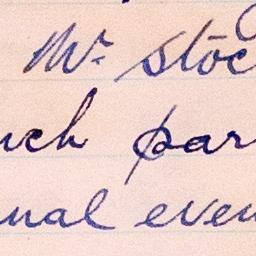 Mr. Stoc
uch par
nal even